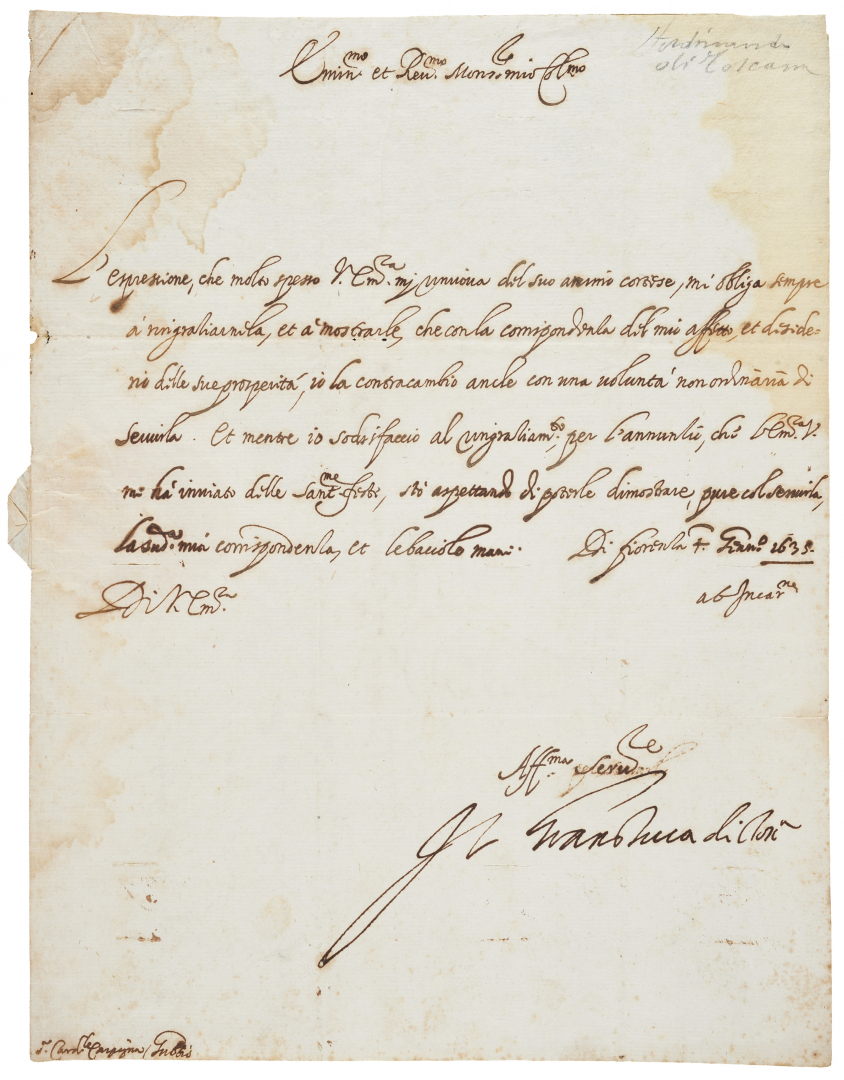 Emin.mo et Reu.mo Mons.re mio Col.mo
Ferdinando
di Toscana
L'espressione, che molto spesso V. Em.za mi rinuova del suo animo cortese, mi obliga sempre
à ringratiarnela, et à mostrarle, che con la corrispondenza del mio affetto, et deside-
rio delle sue prosperità, io la contracambio anche con una volontà non ordinaria di
seruirla. Et mentre io sodisfaccio al ringratiam.to per l'annuntio, che l'Em.za V.
mi hà inuiato delle San.me feste, stò aspettando di poterle dimostrare, pure col seruirla,
la sud.a mia corrispondenza, et le bacio le mani. Di fiorenza Genn.o 1635.
Di V. Em.za
ab Incar.ne
Aff.ma Seru.re
Il Gran Duca di Tos.a
S.r Card.le Carpegna Gubbio